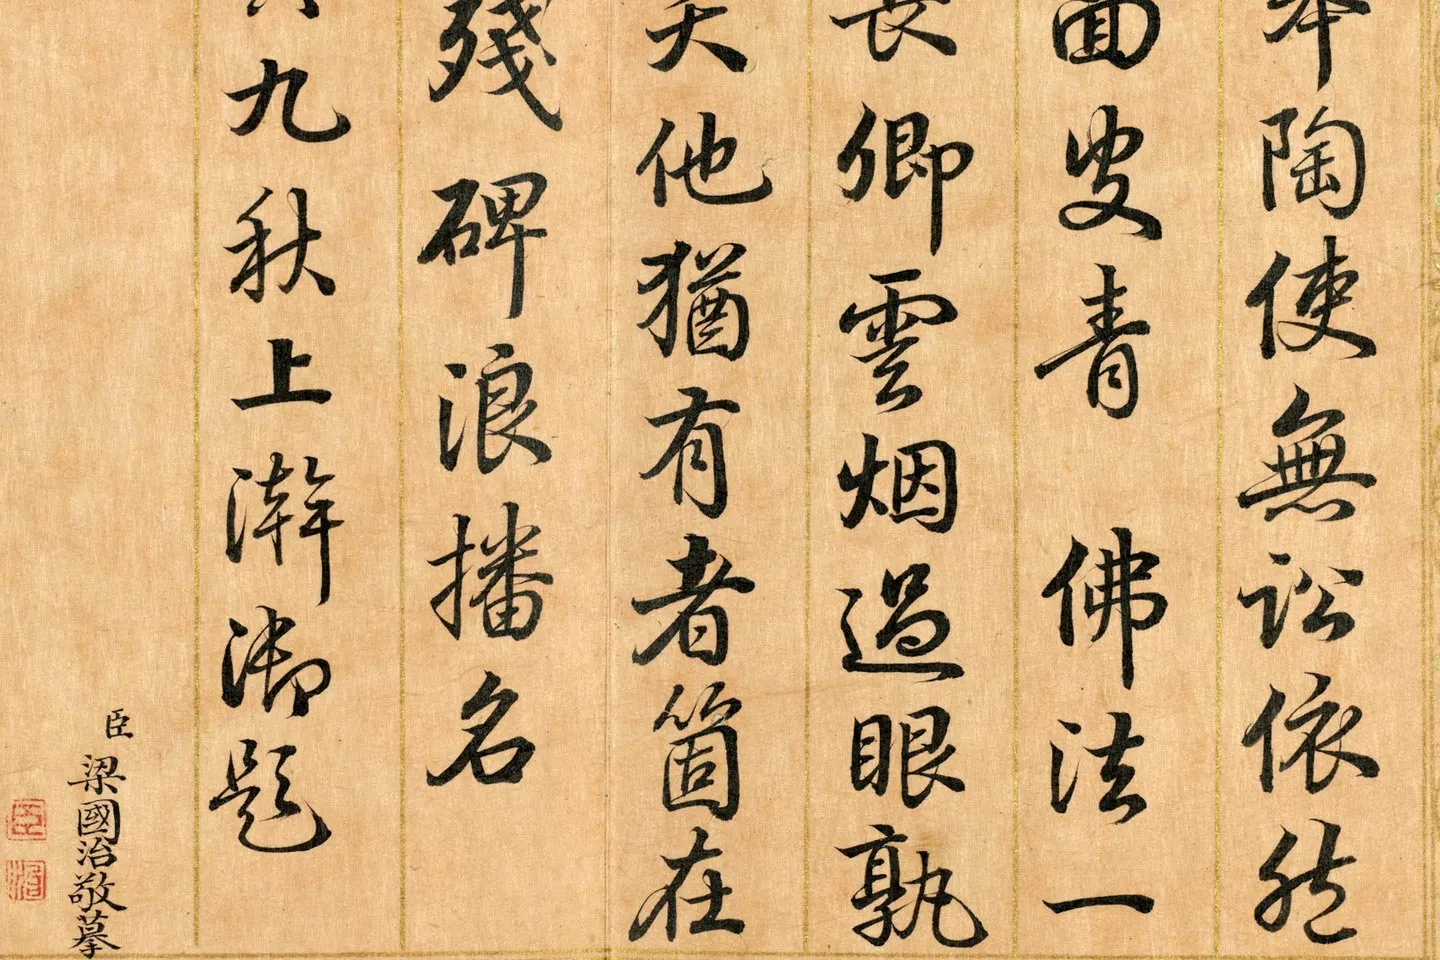 陶使無訟依然
叟青 佛法一
卿雲烟過眼孰
他猶有者箇在
殘碑浪播名
九秋上澣御題
臣梁國治敬摹
臣
治